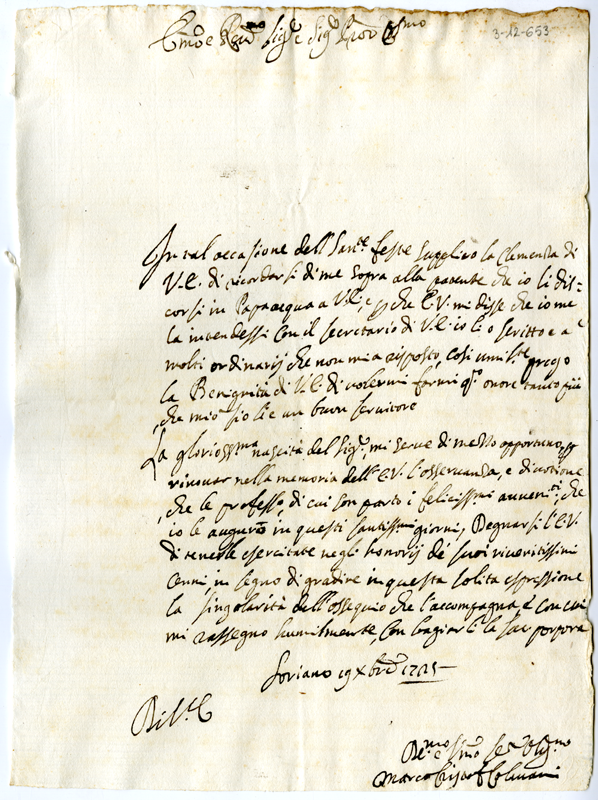 Em.o e Rev.mo Sig.e Sig.e Pron Col.mo
3-12-653
In tal occasione dell Sant.e feste supplico la Clemenza di
V.E. di ricordarsi di me sopra alla patente che io li dis=
corsi in Papacqua a V.E., e che E.V. mi disse che io me
la intendessi con il secretario di V.E. io li o scritto e a
molti ordinarij che non mi a risposto, così umil.te prego
la Benignità di V.E. di volermi farmi q.o onore tanto più
che mio sio li e un buon servitore
La gloriosissma nascita del Sig.e, mi serve di mezzo opportuno, p
rinovar nella memoria dell E.V. l'osservanza, e divotione
che le professo, di cui son parto i felicissmi avveni.ti, che
io le auguro in questi santissmi giorni, Degnarsi l'E.V.
di tenerle esercitate negli honorij de suoi riveritissimi
cenni, in segno di gradire in questa solita espressione
la singolarità dell'ossequio che l'accompagna, e con cui
mi rassegno humilmente, con bagiar li la sac porpora
Soriano 19 Xbre 1725
Di V.E.
Marco